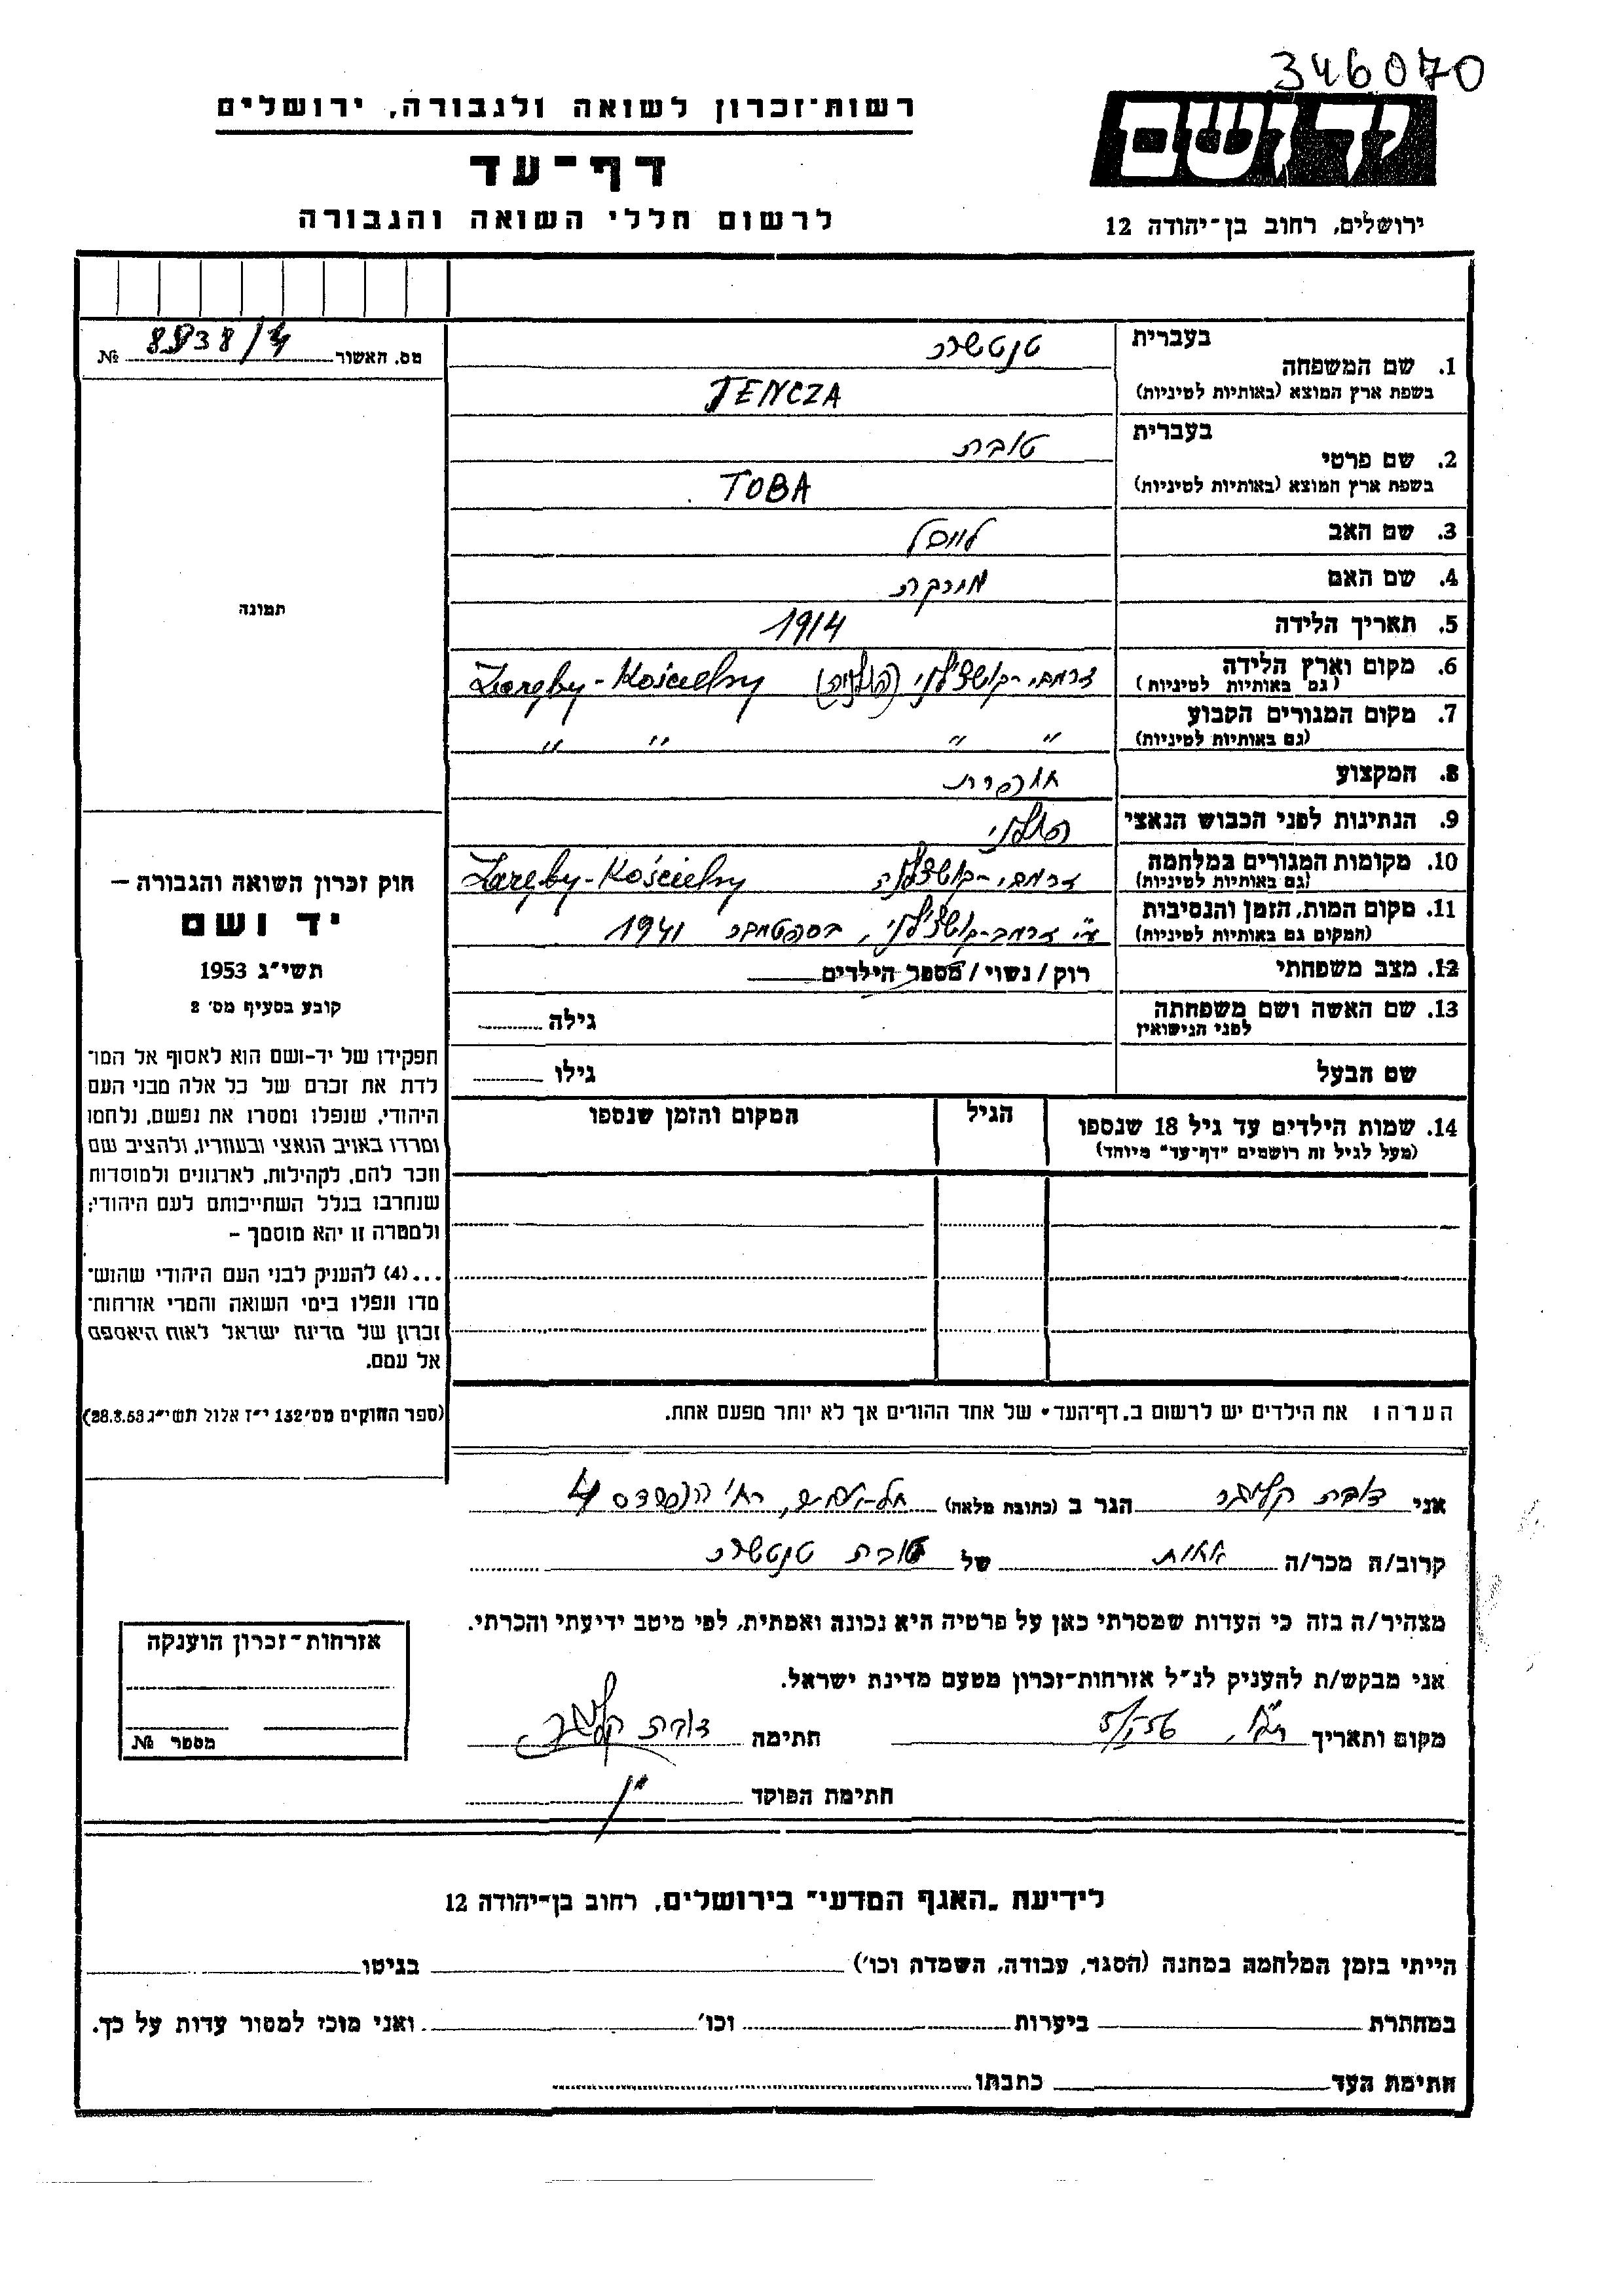 346070
יד ושם
ירושלים, רחוב בן־יהודה 12
רשות־זכרון לשואה ולגבורה, ירושלים
דף־עד
לרשום חללי השואה והגבורה
מס. האשור № 8938/4
1. שם המשפחה בעברית
בשפת ארץ המוצא (באותיות לטיניות) TENCZA
2. שם פרטי בעברית טובה
בשפת ארץ המוצא (באותיות לטיניות) TOBA
3. שם האב
4. שם האם
5. תאריך הלידה 1914
6. מקום וארץ הלידה (גם באותיות לטיניות) Zaręby-Kościelny
7. מקום המגורים הקבוע (גם באותיות לטיניות) " " " "
8. המקצוע תופרת
9. הנתינות לפני הכבוש הנאצי
10. מקומות המגורים במלחמה (גם באותיות לטיניות) Zaręby-Kościelny
11. מקום המות, הזמן והנסיבות (המקום גם באותיות לטיניות) בספטמבר 1941
12. מצב משפחתי רוק / נשוי / מספר הילדים
13. שם האשה ושם משפחתה לפני הנישואין גילה
שם הבעל גילו
14. שמות הילדים עד גיל 18 שנספו
(מעל לגיל זה רושמים "דף־עד" מיוחד)
הגיל
המקום והזמן שנספו
הערה: את הילדים יש לרשום ב„דף־העד" של אחד ההורים אך לא יותר מפעם אחת.
תמונה
חוק זכרון השואה והגבורה —
יד ושם
תשי״ג 1953
קובע בסעיף מס׳ 2
תפקידו של יד־ושם הוא לאסוף אל המו־
לדת את זכרם של כל אלה מבני העם
היהודי, שנפלו ומסרו את נפשם, נלחמו
ומרדו באויב הנאצי ובעוזריו, ולהציב שם
וזכר להם, לקהילות, לארגונים ולמוסדות
שנחרבו בגלל השתייכותם לעם היהודי;
ולמטרה זו יהא מוסמך –
...(4) להעניק לבני העם היהודי שהוש־
מדו ונפלו בימי השואה והמרי אזרחות־
זכרון של מדינת ישראל לאות היאספם
אל עמם.
(ספר החוקים מס׳ 132 י״ז אלול תשי״ג 28.8.53)
אני הגר ב (כתובת מלאה) תל-אביב, רח׳ 4
קרוב/ה מכר/ה אחות של טובה
מצהיר/ה בזה כי העדות שמסרתי כאן על פרטיה היא נכונה ואמתית, לפי מיטב ידיעתי והכרתי.
אני מבקש/ת להעניק לנ״ל אזרחות־זכרון מטעם מדינת ישראל.
מקום ותאריך חתימה
חתימת הפוקד
אזרחות־זכרון הוענקה
מספר №
לידיעת „האגף המדעי" בירושלים, רחוב בן־יהודה 12
הייתי בזמן המלחמה במחנה (הסגר, עבודה, השמדה וכו׳) בגיטו
במחתרת ביערות וכו׳ ואני מוכן למסור עדות על כך.
חתימת העד כתבתו